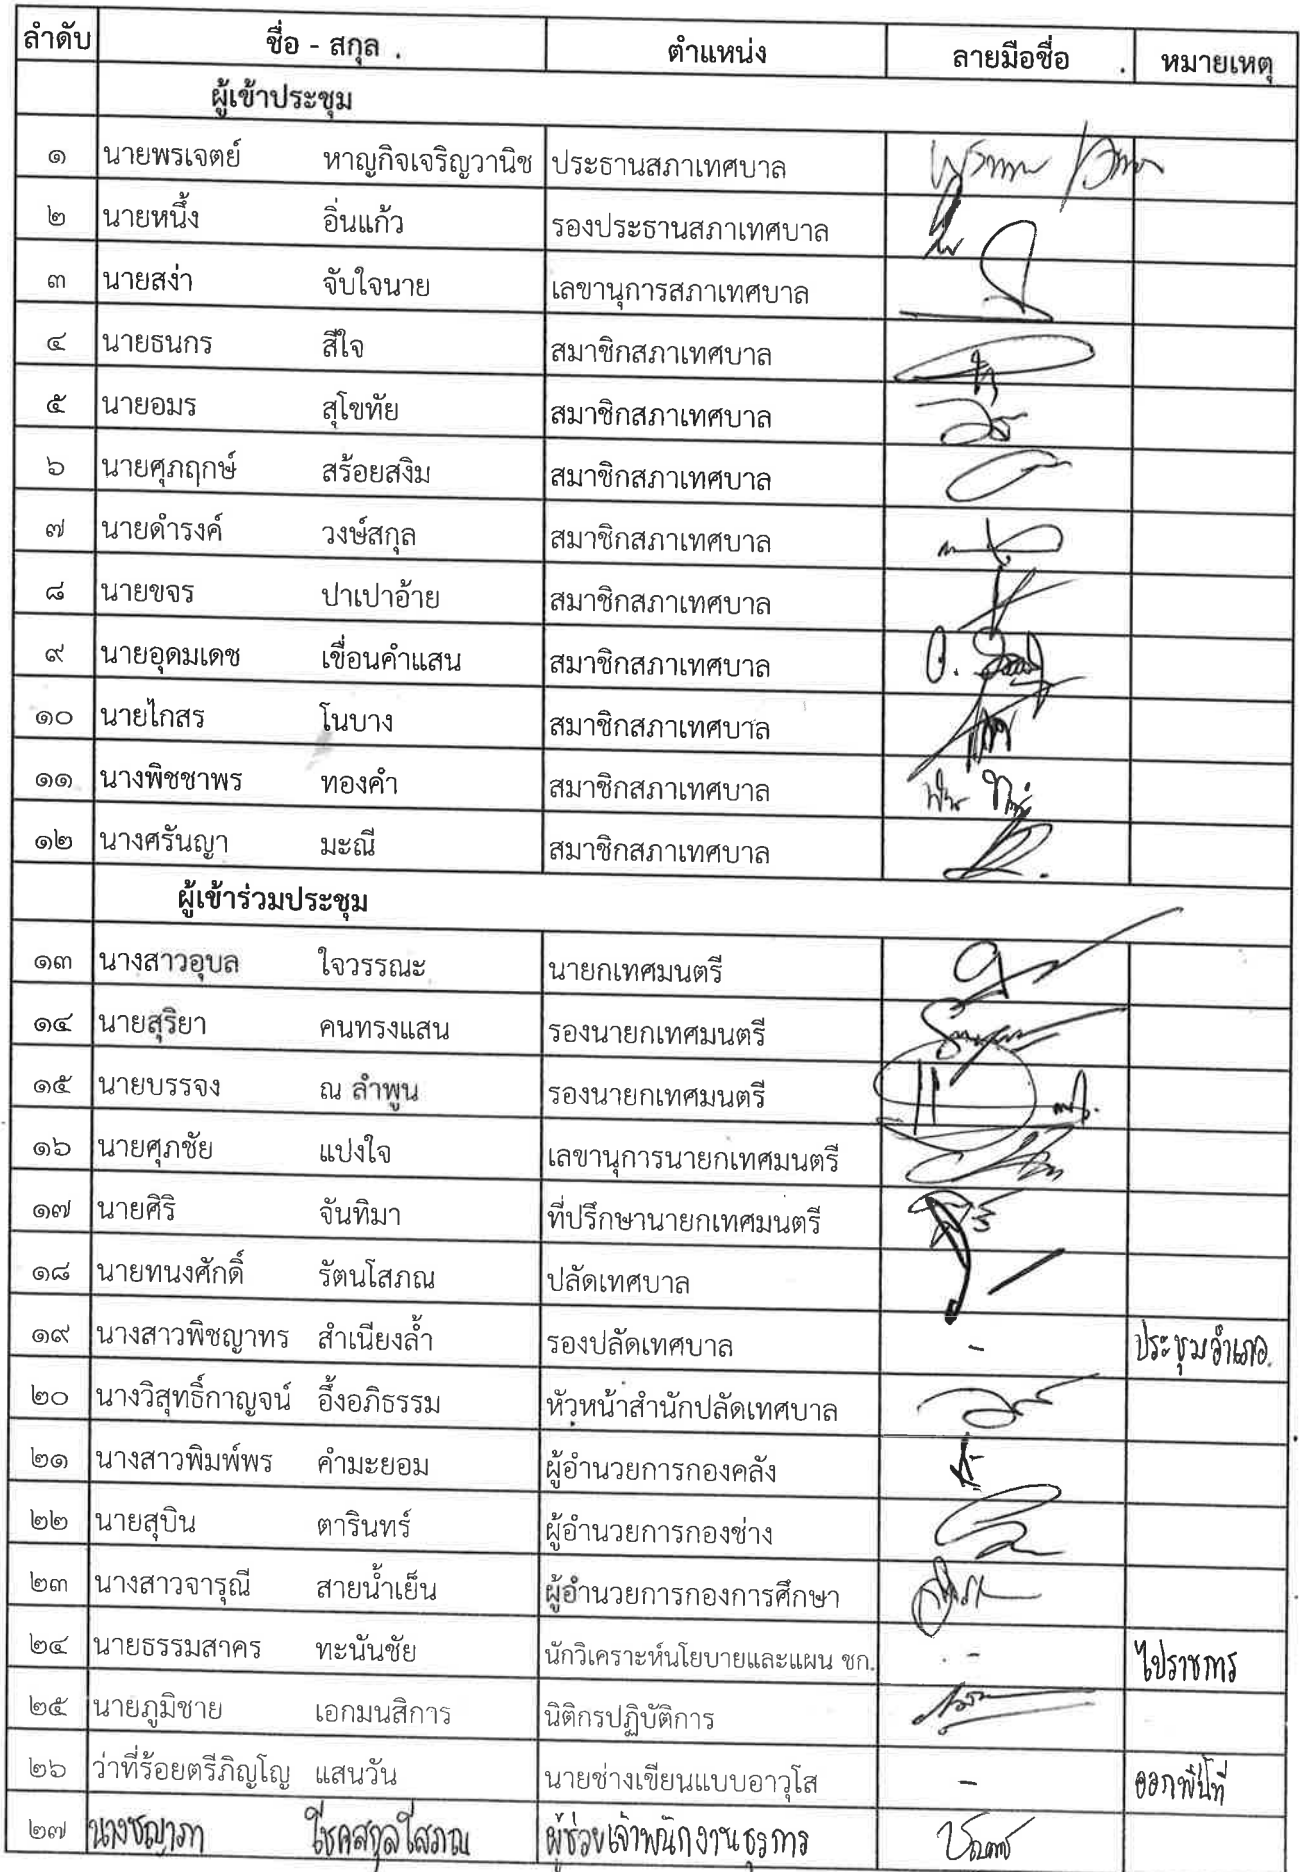 ลำดับ ชื่อ - สกุล ตำแหน่ง ลายมือชื่อ หมายเหตุ
ผู้เข้าประชุม
๑ นายพรเจตย์ หาญกิจเจริญวานิช ประธานสภาเทศบาล
๒ นายหนึ้ง อิ่นแก้ว รองประธานสภาเทศบาล
๓ นายสง่า จับใจนาย เลขานุการสภาเทศบาล
๔ นายธนกร สีใจ สมาชิกสภาเทศบาล
๕ นายอมร สุโขทัย สมาชิกสภาเทศบาล
๖ นายศุภฤกษ์ สร้อยสงิม สมาชิกสภาเทศบาล
๗ นายดำรงค์ วงษ์สกุล สมาชิกสภาเทศบาล
๘ นายขจร ปาเปาอ้าย สมาชิกสภาเทศบาล
๙ นายอุดมเดช เขื่อนคำแสน สมาชิกสภาเทศบาล
๑๐ นายไกสร โนบาง สมาชิกสภาเทศบาล
๑๑ นางพิชชาพร ทองคำ สมาชิกสภาเทศบาล
๑๒ นางศรันญา มะณี สมาชิกสภาเทศบาล
ผู้เข้าร่วมประชุม
๑๓ นางสาวอุบล ใจวรรณะ นายกเทศมนตรี
๑๔ นายสุริยา คนทรงแสน รองนายกเทศมนตรี
๑๕ นายบรรจง ณ ลำพูน รองนายกเทศมนตรี
๑๖ นายศุภชัย แปงใจ เลขานุการนายกเทศมนตรี
๑๗ นายศิริ จันทิมา ที่ปรึกษานายกเทศมนตรี
๑๘ นายทนงศักดิ์ รัตนโสภณ ปลัดเทศบาล
๑๙ นางสาวพิชญาทร สำเนียงล้ำ รองปลัดเทศบาล - ประชุมอำเภอ.
๒๐ นางวิสุทธิ์กาญจน์ อึ้งอภิธรรม หัวหน้าสำนักปลัดเทศบาล
๒๑ นางสาวพิมพ์พร คำมะยอม ผู้อำนวยการกองคลัง
๒๒ นายสุบิน ตารินทร์ ผู้อำนวยการกองช่าง
๒๓ นางสาวจารุณี สายน้ำเย็น ผู้อำนวยการกองการศึกษา
๒๔ นายธรรมสาคร ทะนันชัย นักวิเคราะห์นโยบายและแผน ชก. - ไปราชการ
๒๕ นายภูมิชาย เอกมนสิการ นิติกรปฏิบัติการ
๒๖ ว่าที่ร้อยตรีภิญโญ แสนวัน นายช่างเขียนแบบอาวุโส - ออกพื้นที่
๒๗ นางชญาภา โชคสกุลโสภณ ผู้ช่วยเจ้าพนักงานธุรการ